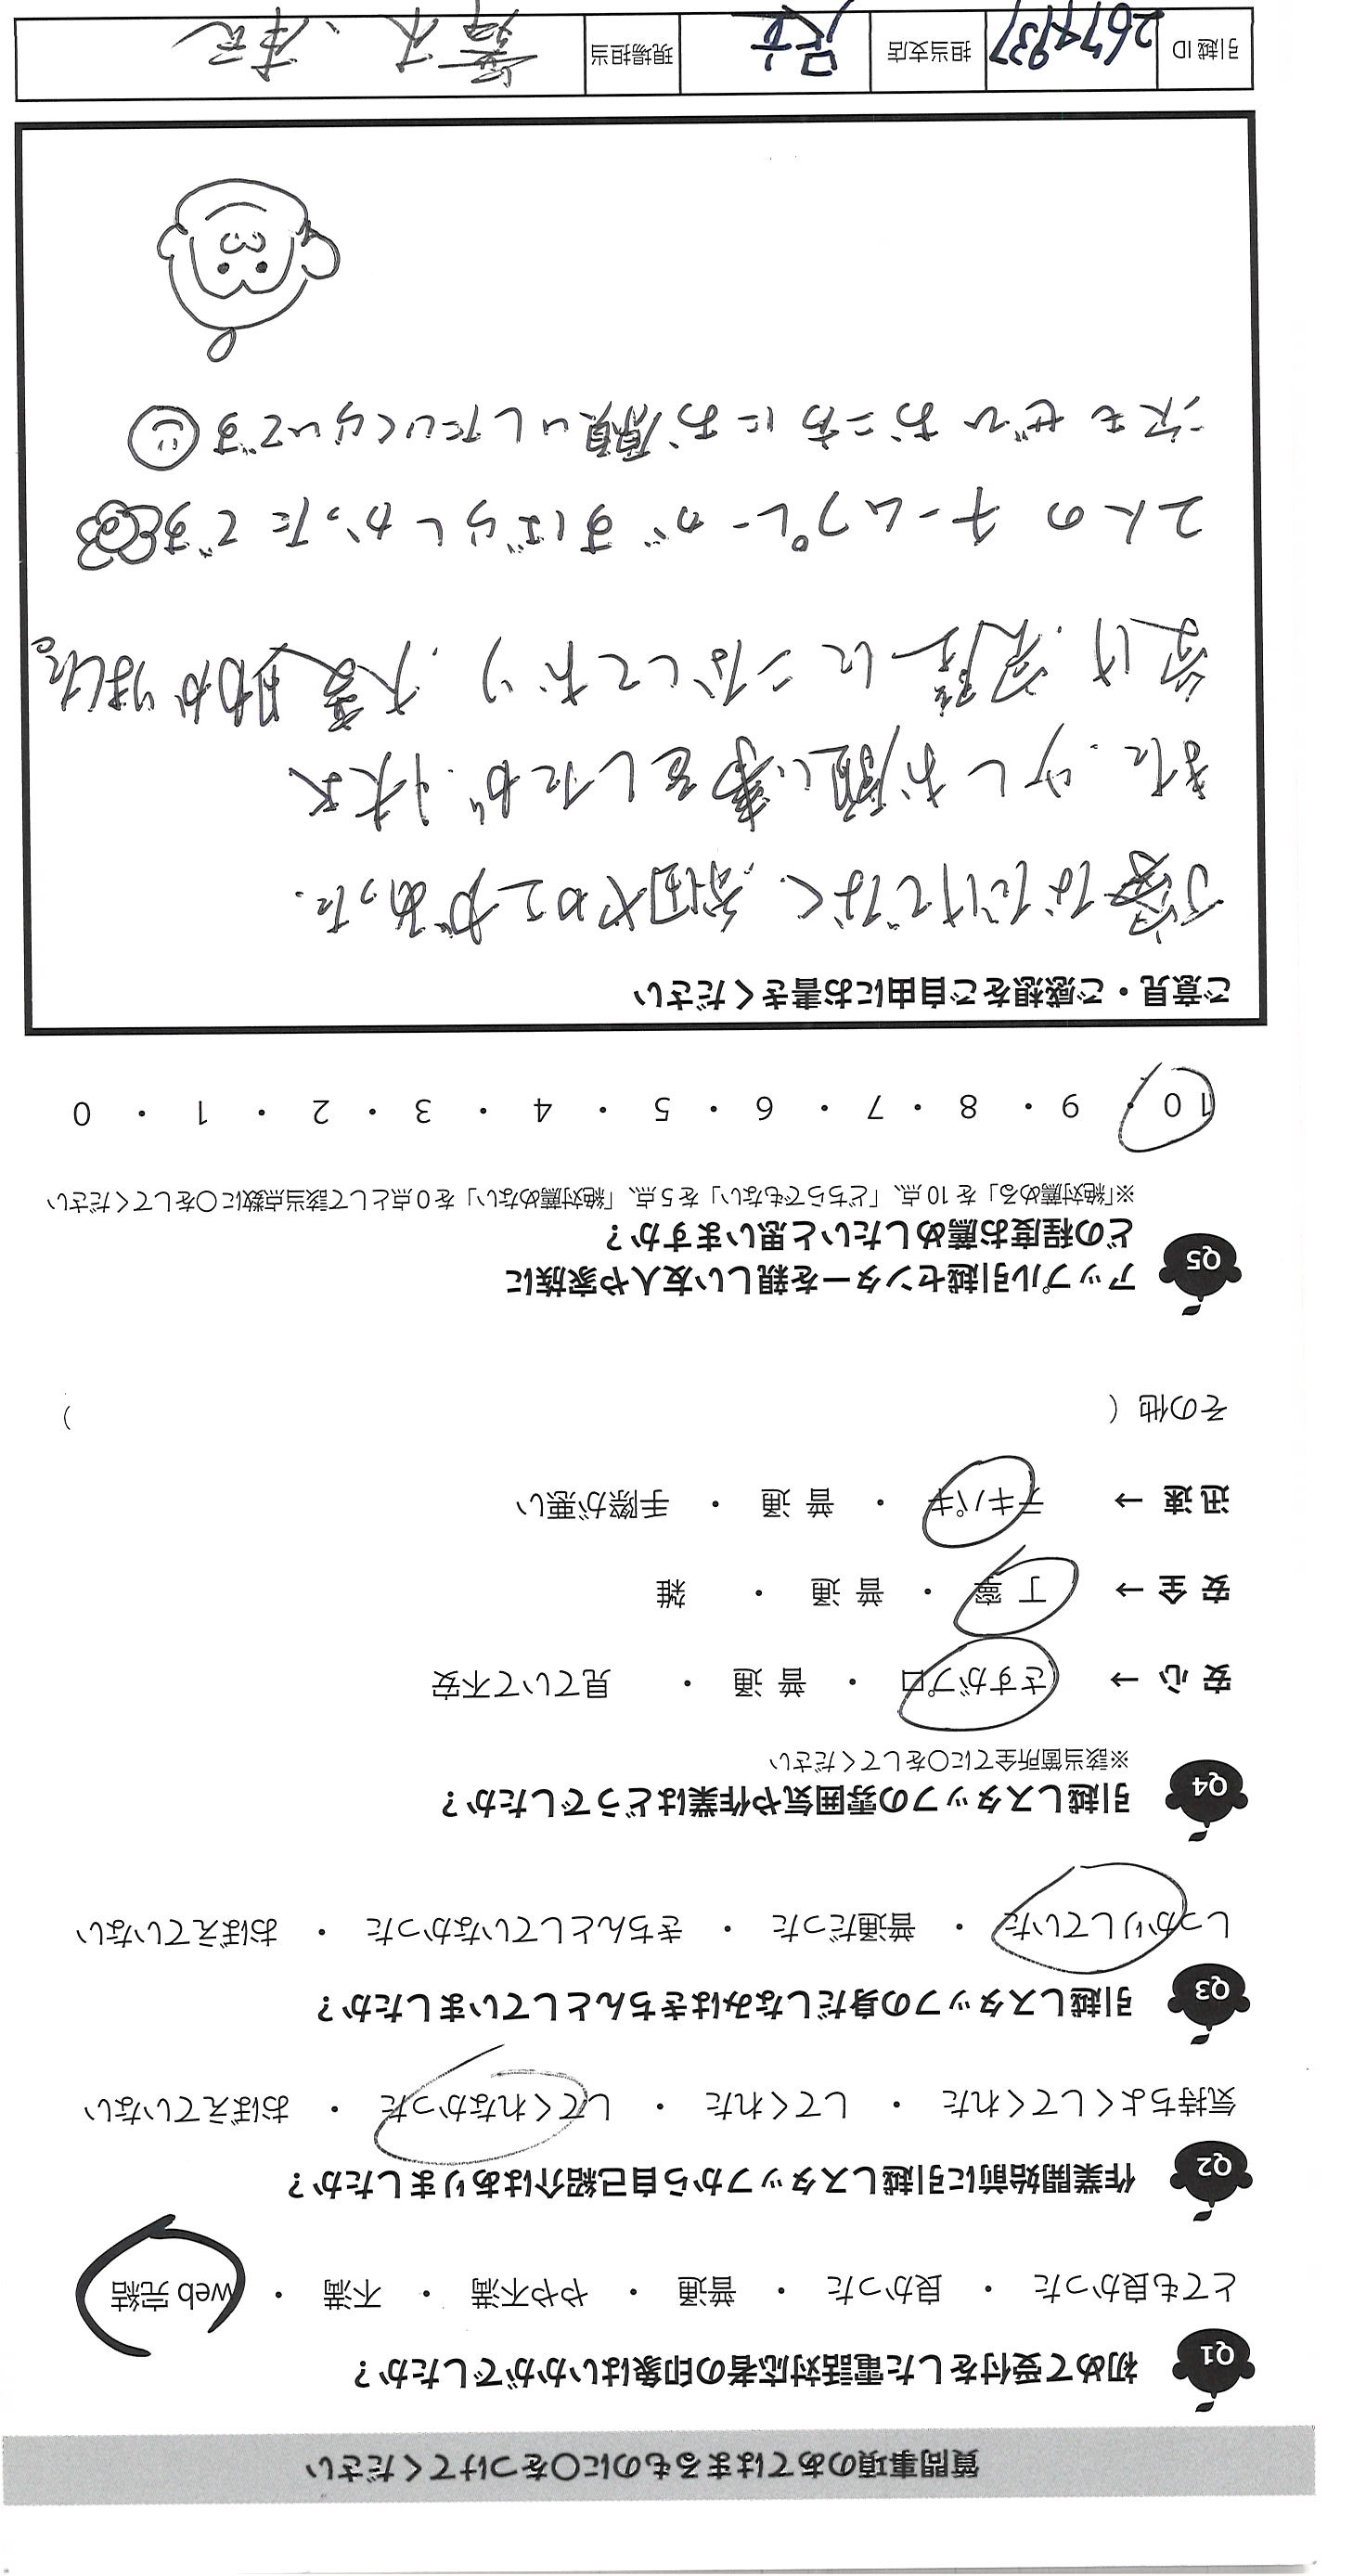 質問事項のあてはまるものに〇をつけてください
Q1 初めて受付をした電話対応者の印象はいかがでしたか？
とても良かった ・ 良かった ・ 普通 ・ やや不満 ・ 不満 ・ web 完結
Q2 作業開始前に引越しスタッフから自己紹介はありましたか？
気持ちよくしてくれた ・ してくれた ・ してくれなかった ・ おぼえていない
Q3 引越しスタッフの身だしなみはきちんとしていましたか？
しっかりしていた ・ 普通だった ・ きちんとしていなかった ・ おぼえていない
Q4 引越しスタッフの雰囲気や作業はどうでしたか？
※該当箇所全てに〇をしてください
安 心 → さすがプロ ・ 普 通 ・ 見ていて不安
安 全 → 丁 寧 ・ 普 通 ・ 雑
迅 速 → テキパキ ・ 普 通 ・ 手際が悪い
その他（ ）
Q5 アップル引越センターを親しい友人や家族に
どの程度お薦めしたいと思いますか？
※「絶対薦める」を 10 点、「どちらでもない」を 5 点、「絶対薦めない」を 0 点として該当点数に〇をしてください
10 ・ 9 ・ 8 ・ 7 ・ 6 ・ 5 ・ 4 ・ 3 ・ 2 ・ 1 ・ 0
ご意見・ご感想をご自由にお書きください
丁寧なだけでなく、気回や工があった.
また、少しお願い事をしたが、快く
受け、完璧にこなしており、大変助かりました。
2人のチームプレーがすばらしかったです
次もぜひおこちにお願いしたいくらいです
引越 ID 担当支店 現場担当